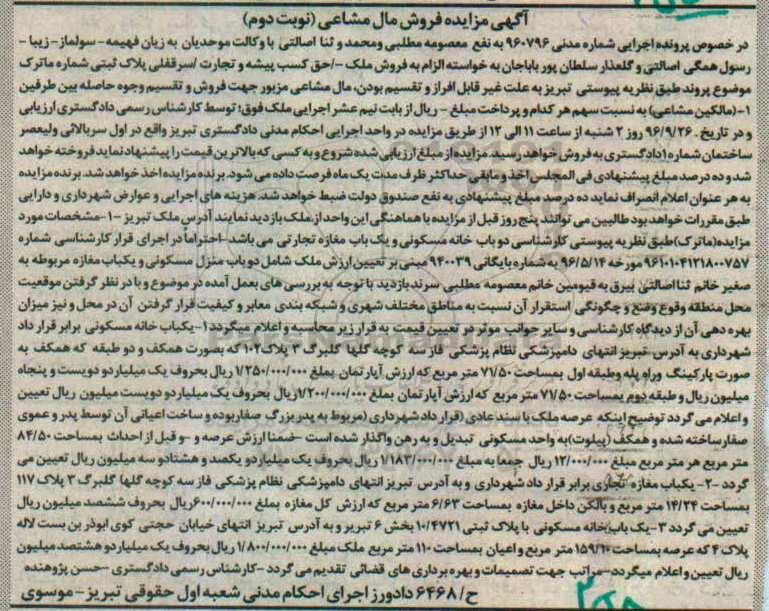 آگهی مزایده فروش مال مشاعی (نوبت دوم)
در خصوص پرونده اجرایی شماره مدنی ۹۶۰۷۹۶ به نفع معصومه مطلبی ومحمد و ثنا اصالتی با وکالت موحدیان به زیان فهیمه- سولماز- زیبا-
رسول همگی اصالتی و گلعذار سلطان پور باباجان به خواسته الزام به فروش ملک -/حق کسب پیشه و تجارت /سرقفلی پلاک ثبتی شماره ماترک
موضوع پروند طبق نظریه پیوستی تبریز به علت غیر قابل افراز و تقسیم بودن، مال مشاعی مزبور جهت فروش و تقسیم وجوه حاصله بین طرفین
۱-(مالکین مشاعی) به نسبت سهم هر کدام و پرداخت مبلغ - ریال از بابت نیم عشر اجرایی ملک فوق؛ توسط کارشناس رسمی دادگستری ارزیابی
و در تاریخ . ۹۶/۹/۲۶ روز ۲ شنبه از ساعت ۱۱ الی ۱۲ از طریق مزایده در واحد اجرایی احکام مدنی دادگستری تبریز واقع در اول سربالائی ولیعصر
ساختمان شماره ۱دادگستری به فروش خواهد رسید. مزایده از مبلغ ارزیابی شده شروع و به کسی که بالاترین قیمت را پیشنهاد نماید فروخته خواهد
شد و ده درصد مبلغ پیشنهادی فی المجلس اخذ و مابقی حداکثر ظرف مدت یک ماه فرصت داده می شود. برنده مزایده اخذ خواهد شد. برنده مزایده
به هر عنوان اعلام انصراف نماید ده درصد مبلغ پیشنهادی به نفع صندوق دولت ضبط خواهد شد. هزینه های اجرایی و عوارض شهرداری و دارایی
طبق مقررات خواهد بود طالبین می توانند پنج روز قبل از مزایده با هماهنگی این واحد از ملک بازدید نمایند آدرس ملک تبریز -۱- مشخصات مورد
مزایده(ماترک)طبق نظریه پیوستی کارشناسی دو باب خانه مسکونی و یک باب مغازه تجارتی می باشد-احتراماً در اجرای قرار کارشناسی شماره
۹۶۱۰۱۰۴۱۲۱۸۰۰۷۵۷ مورخه ۹۶/۵/۱۴ به شماره بایگانی ۹۴۰۰۳۹ مبنی بر تعیین ارزش ملک شامل دو باب منزل مسکونی و یکباب مغازه مربوطه به
صغیر خانم ثنا اصالتی نیرق به قیومین خانم معصومه مطلبی سرند بازدید با توجه به بررسی های بعمل آمده در موضوع و با در نظر گرفتن موقعیت
محل منطقه وقوع وضع و چگونگی استقرار آن نسبت به مناطق مختلف شهری و شبکه بندی معابر و کیفیت قرار گرفتن آن در محل و نیز میزان
بهره دهی آن از دیدگاه کارشناسی و سایر جوانب موثر در تعیین قیمت به قرار زیر محاسبه و اعلام میگردد ۱- یکباب خانه مسکونی برابر قرار داد
شهرداری به آدرس تبریز انتهای دامپزشکی نظام پزشکی فاز سه کوچه گلها گلبرگ ۳ پلاک ۱۰۲ که بصورت همکف و دو طبقه که همکف به
صورت پارکینگ و راه پله وطبقه اول بمساحت ۷۱/۵۰ متر مربع که ارزش آپارتمان بمبلغ ۱/۲۵۰/۰۰۰/۰۰۰ ریال بحروف یک میلیارد و دویست و پنجاه
میلیون ریال و طبقه دوم بمساحت ۷۱/۵۰ متر مربع که ارزش آپارتمان بمبلغ ۱/۲۰۰/۰۰۰/۰۰۰ریال بحروف یک میلیارد و دویست میلیون ریال تعیین
و اعلام می گردد توضیح اینکه عرصه ملک با سند عادی (قرار داد شهرداری (مربوط به پدر بزرگ صغار بوده و ساخت اعیانی آن توسط پدر و عموی
صغار ساخته شده و همکف (پیلوت)به واحد مسکونی تبدیل و به رهن واگذار شده است -ضمنا ارزش عرصه و -و قبل از احداث بمساحت ۸۴/۵۰
متر مربع هر متر مربع مبلغ ۱۲/۰۰۰/۰۰۰ ریال جمعا به مبلغ ۱/۱۸۳/۰۰۰/۰۰۰ ریال بحروف یک میلیارد و یکصد و هشتاد و سه میلیون ریال تعیین می
گردد -۲- یکباب مغازه تجاری برابر قرار داد شهرداری و به آدرس تبریز انتهای دامپزشکی نظام پزشکی فاز سه کوچه گلها گلبرگ ۳ پلاک ۱۱۷
بمساحت ۱۴/۲۴ متر مربع و بالکن داخل مغازه بمساحت ۶/۶۳ متر مربع که ارزش کل مغازه بمبلغ ۶۰۰/۰۰۰/۰۰۰ریال بحروف ششصد میلیون ریال
تعیین می گردد ۳-یک باب خانه مسکونی با پلاک ثبتی ۱۰/۴۷۲۱ بخش ۶ تبریز و به آدرس تبریز انتهای خیابان حجتی کوی ابوذر بن بست لاله
پلاک ۴ که عرصه بمساحت ۱۵۹/۱۰ متر مربع و اعیان بمساحت ۱۱۰ متر مربع ملک مبلغ ۱/۸۰۰/۰۰۰/۰۰۰ ریال بحروف یک میلیارد و هشتصد میلیون
ریال تعیین و اعلام میگردد-مراتب جهت تصمیمات و بهره برداری های قضائی تقدیم می گردد -کارشناس رسمی دادگستری -حسن پژوهنده
ح/۶۴۶۸ دادورز اجرای احکام مدنی شعبه اول حقوقی تبریز- موسوی